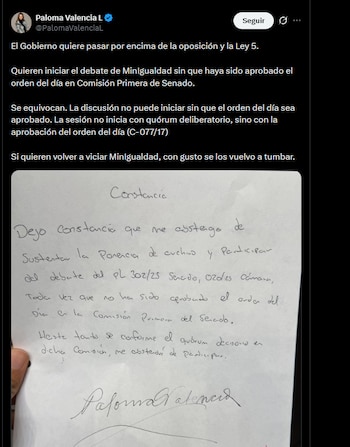 Paloma Valencia L
@PalomaValenciaL
Seguir
El Gobierno quiere pasar por encima de la oposición y la Ley 5.
Quieren iniciar el debate de MinIgualdad sin que haya sido aprobado el
orden del día en Comisión Primera de Senado.
Se equivocan. La discusión no puede iniciar sin que el orden del día sea
aprobado. La sesión no inicia con quórum deliberatorio, sino con la
aprobación del orden del día (C-077/17)
Si quieren volver a viciar MinIgualdad, con gusto se los vuelvo a tumbar.
Constancia
Dejo Constancia que me abstengo de
Sustentar la Ponencia de archivo y Participar
del debate del PL 302/25 Senado, 020/25 Cámara,
Toda vez que no ha sido aprobado el orden del
Día en la Comisión Primera del Senado.
Hasta tanto se conforme el quórum decisorio en
dicha Comisión, me abstendré de participar.
Paloma Valencia